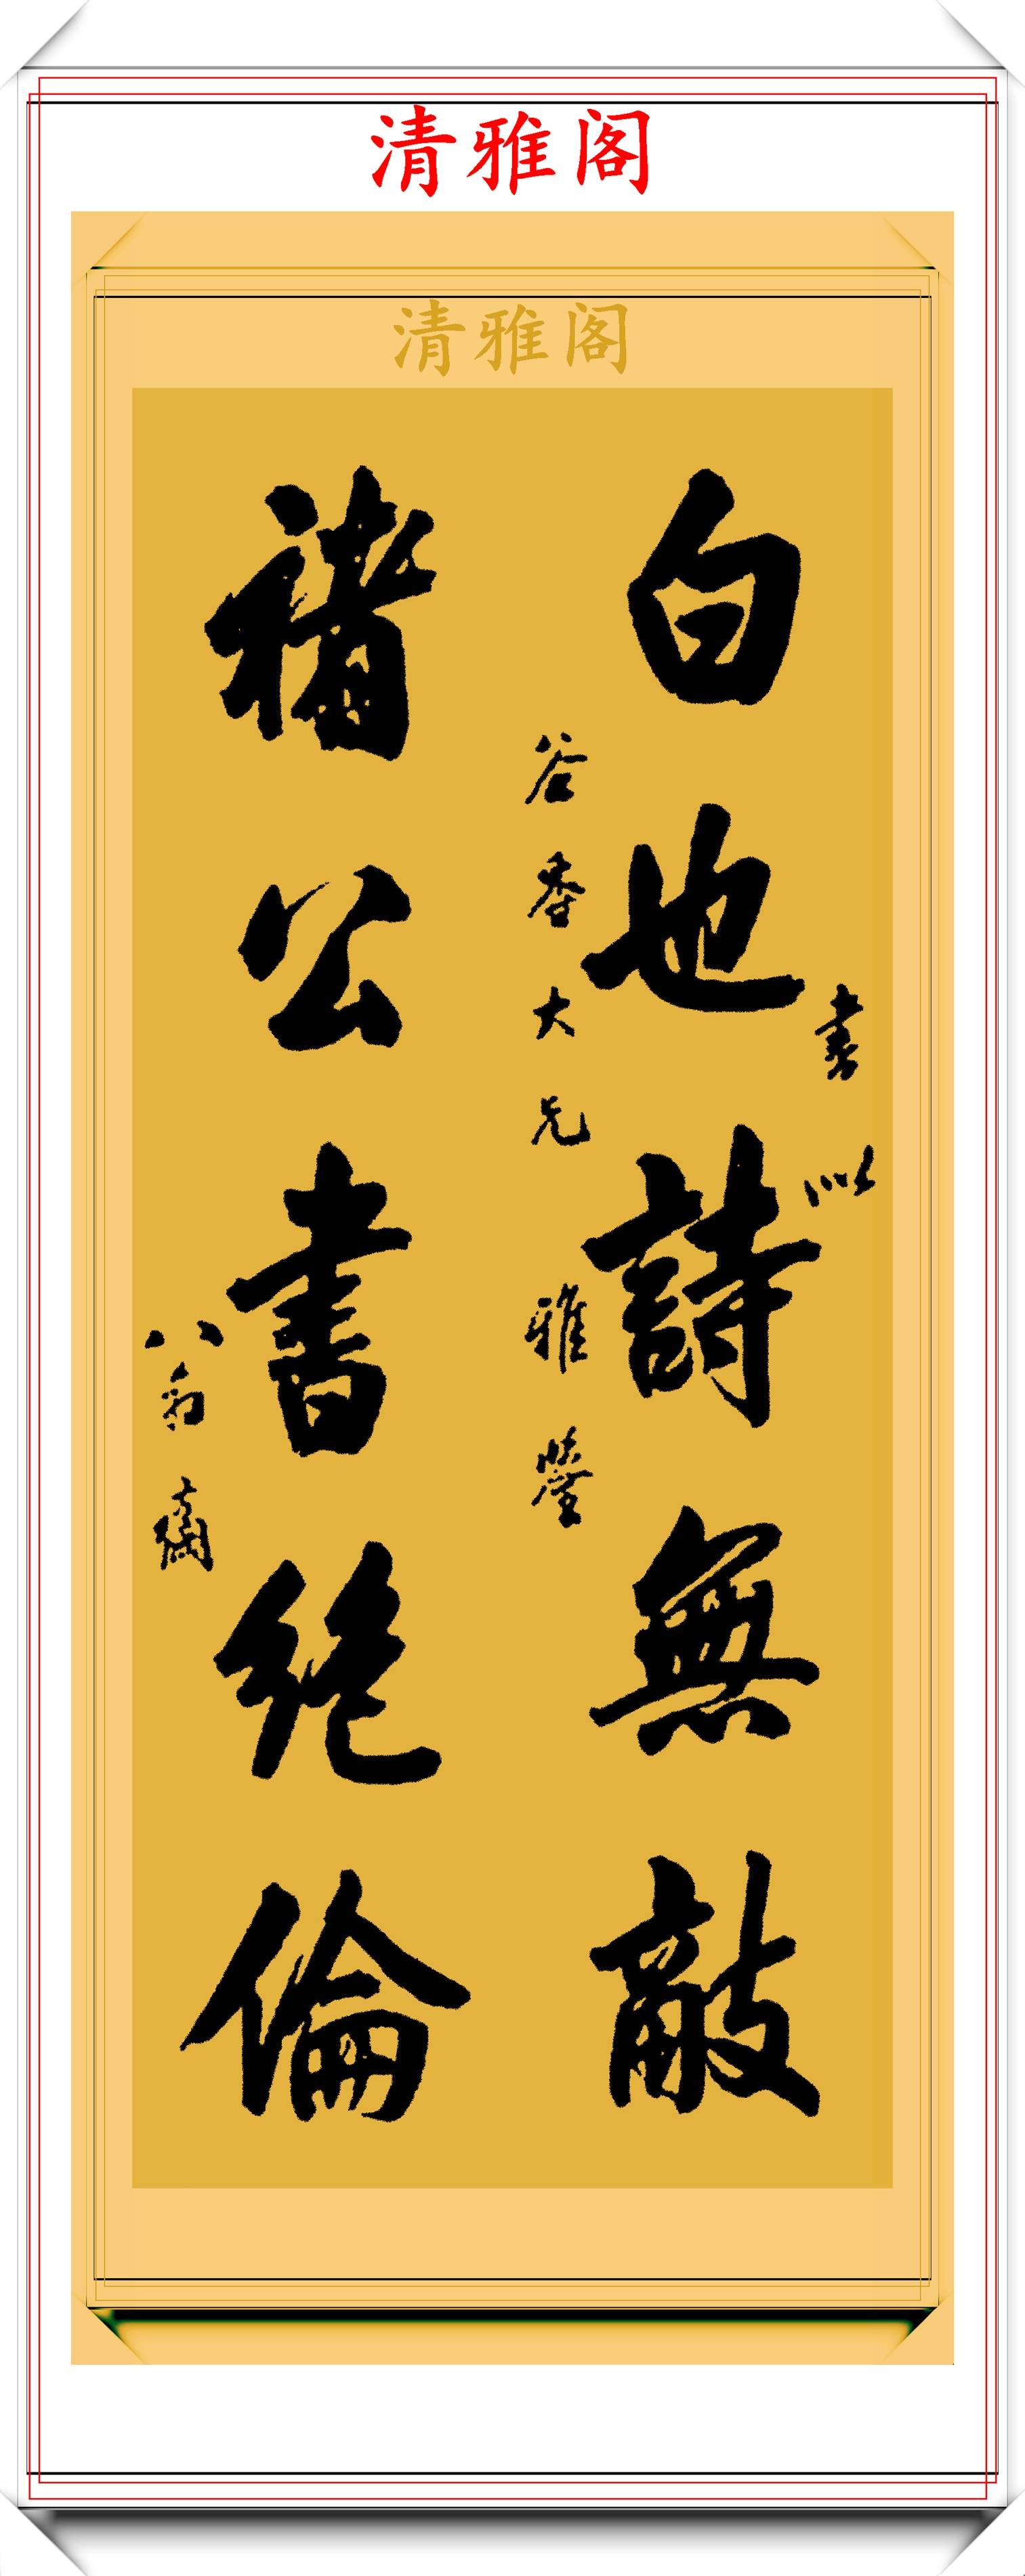 清雅阁
清雅阁
書以
白也詩無敵
谷香大兄雅鑒
褚公書絕倫
八翁